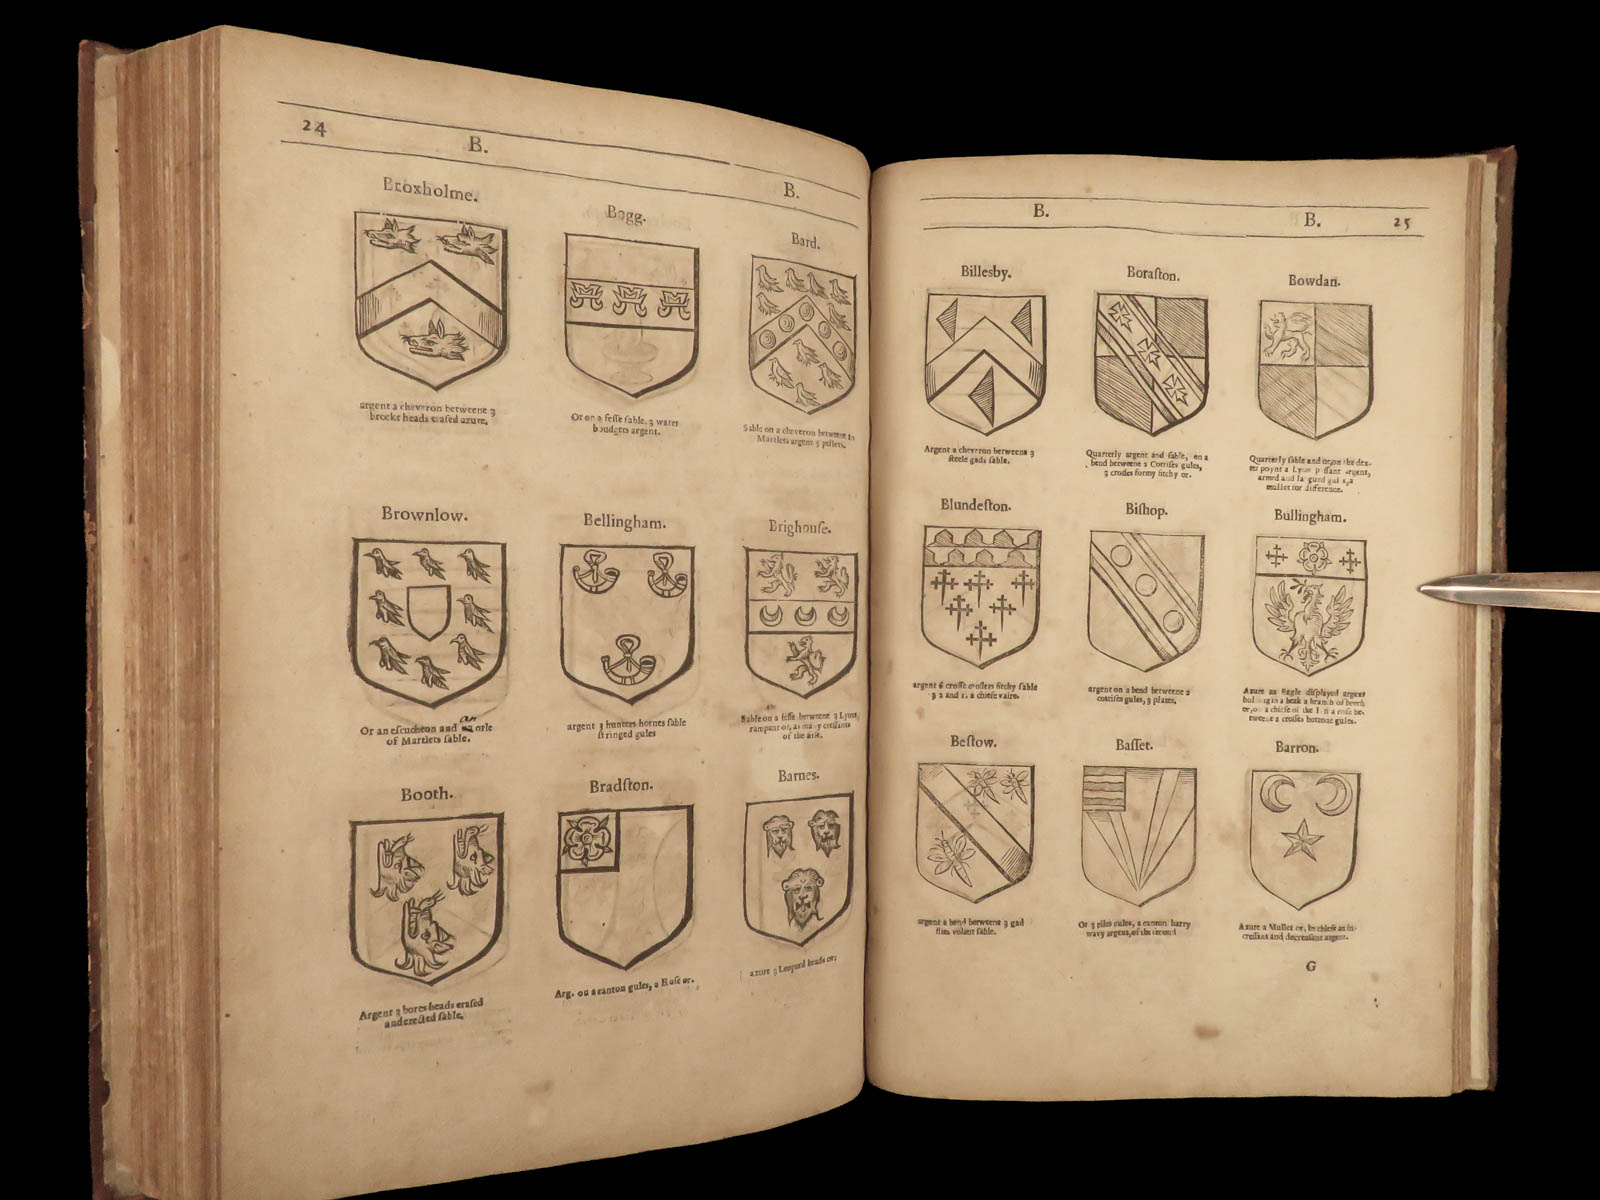 24
B.
B.
Broxholme.
Bogg.
Bard.
argent a cheveron betweene 3
brocke heads erased azure.
Or on a fesse sable, 3 water
boudgets argent.
Sable on a cheveron betweene 10
Martlets argent 5 pellets.
Brownlow.
Bellingham.
Brighouſe.
Or an escucheon and an orle
of Martlets sable.
argent 3 hunters hornes ſable
ſtringed gules
Sable on a feſſe betweene 3 Lyons
rampant or, as many creſſants
of the
Booth.
Bradſton.
Barnes.
Argent 3 bores heads eraſed
and erected ſable.
Arg. on a canton gules, a Roſe or.
azure 3 Leopard heads or.
B.
B.
25
Billesby.
Boraſton.
Bowdan.
Argent a cheveron betweene 3
ſteele gads ſable.
Quarterly argent and ſable, on a
bend betweene 2 Cottiſes gules,
3 croſſes formy fitchy or.
Quarterly ſable and or, on the dex-
ter poynt a Lyon p ſſant argent,
armed and la gued gul s, a
mullet for difference.
Blundeſton.
Biſhop.
Bullingham.
argent 6 croſſe croſlets fitchy ſable
3 2 and 1. a chiefe vaire.
argent on a bend betweene 2
cottiſes gules, 3 plates.
Azure an Eagle diſplayed argent
holding in a beak a branch of beech
or, on a chiefe of the a roſe be-
tweene 2 croſſes bottone gules.
Beſtow.
Baſſet.
Barron.
argent a bend betweene 3 gad
flies volant ſable.
Or 3 piles gules, a canton barry
wavy argent, of the ſecond
Azure a Mullet or, in chiefe an in-
creſſant and decreſſant argent.
G